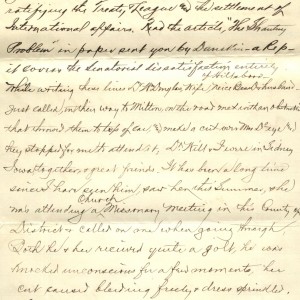 ratifying the Treaty, League & the settlement of
International affairs. Read the article, "The Shantung
Problem in paper sent you by
it covers the Senatorial dissatisfaction entirely
of Hillsboro
While writing these lines Dr. Wife,
Just called, on their way to Milton, on the road met in than
that throwed them to top of car, & made a cut over Mrs Dr eye &
they stopped for me to attend it, Dr. & I were in Sidney
Iowa together, & great friends. It has been a long time
since I had seen him, saw her this Summer, she
Church
was attending a Missionary meeting in the County
District & called on me when going through.
Both he & her received quite a jolt, he was
knocked unconscious for a few moments, her
cut caused bleeding freely, & dress sprinkled.